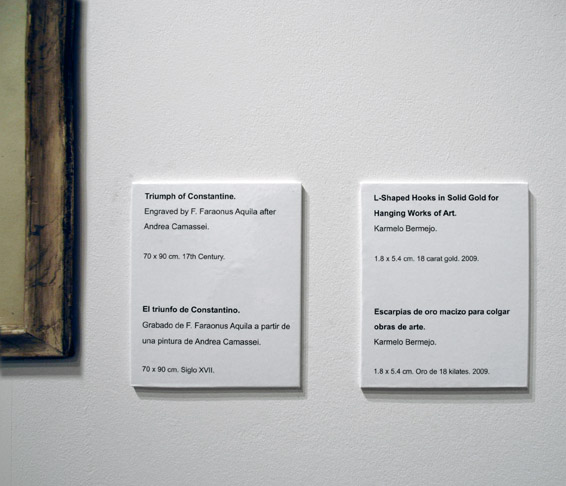 Triumph of Constantine.
Engraved by F. Faraonus Aquila after
Andrea Camassei.
70 x 90 cm. 17th Century.
El triunfo de Constantino.
Grabado de F. Faraonus Aquila a partir de
una pintura de Andrea Camassei.
70 x 90 cm. Siglo XVII.
L-Shaped Hooks in Solid Gold for
Hanging Works of Art.
Karmelo Bermejo.
1.8 x 5.4 cm. 18 carat gold. 2009.
Escarpias de oro macizo para colgar
obras de arte.
Karmelo Bermejo.
1.8 x 5.4 cm. Oro de 18 kilates. 2009.